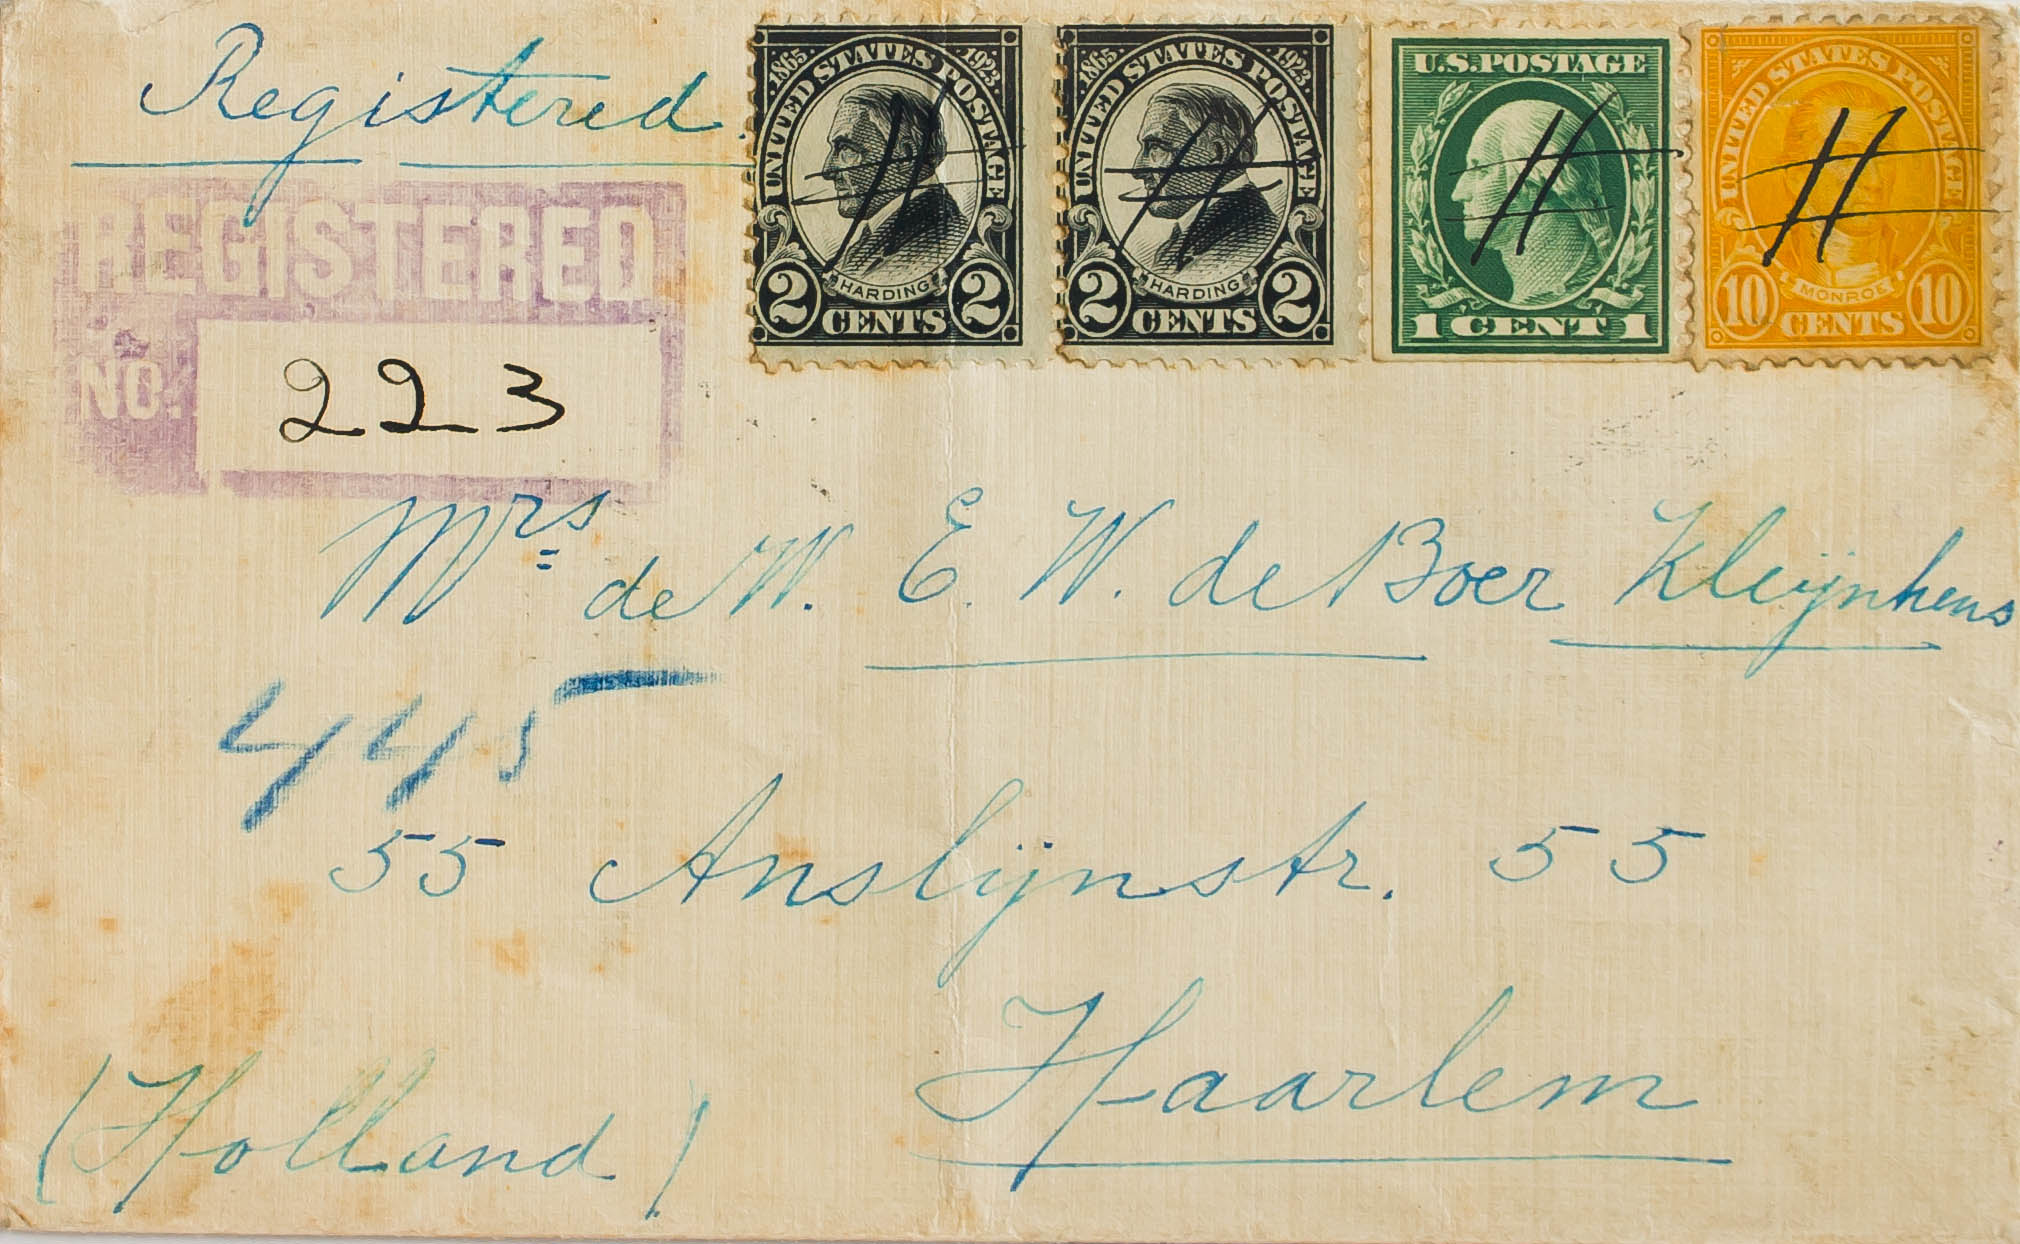 Registered.
1865 1923
UNITED STATES POSTAGE
HARDING
2 CENTS 2
1865 1923
UNITED STATES POSTAGE
HARDING
2 CENTS 2
U.S. POSTAGE
1 CENT 1
UNITED STATES POSTAGE
MONROE
10 CENTS 10
REGISTERED
NO. 223
Mrs de W. E. W. de Boer Kleijnhens
445
55 Anslijnstr. 55
Haarlem
(Holland)